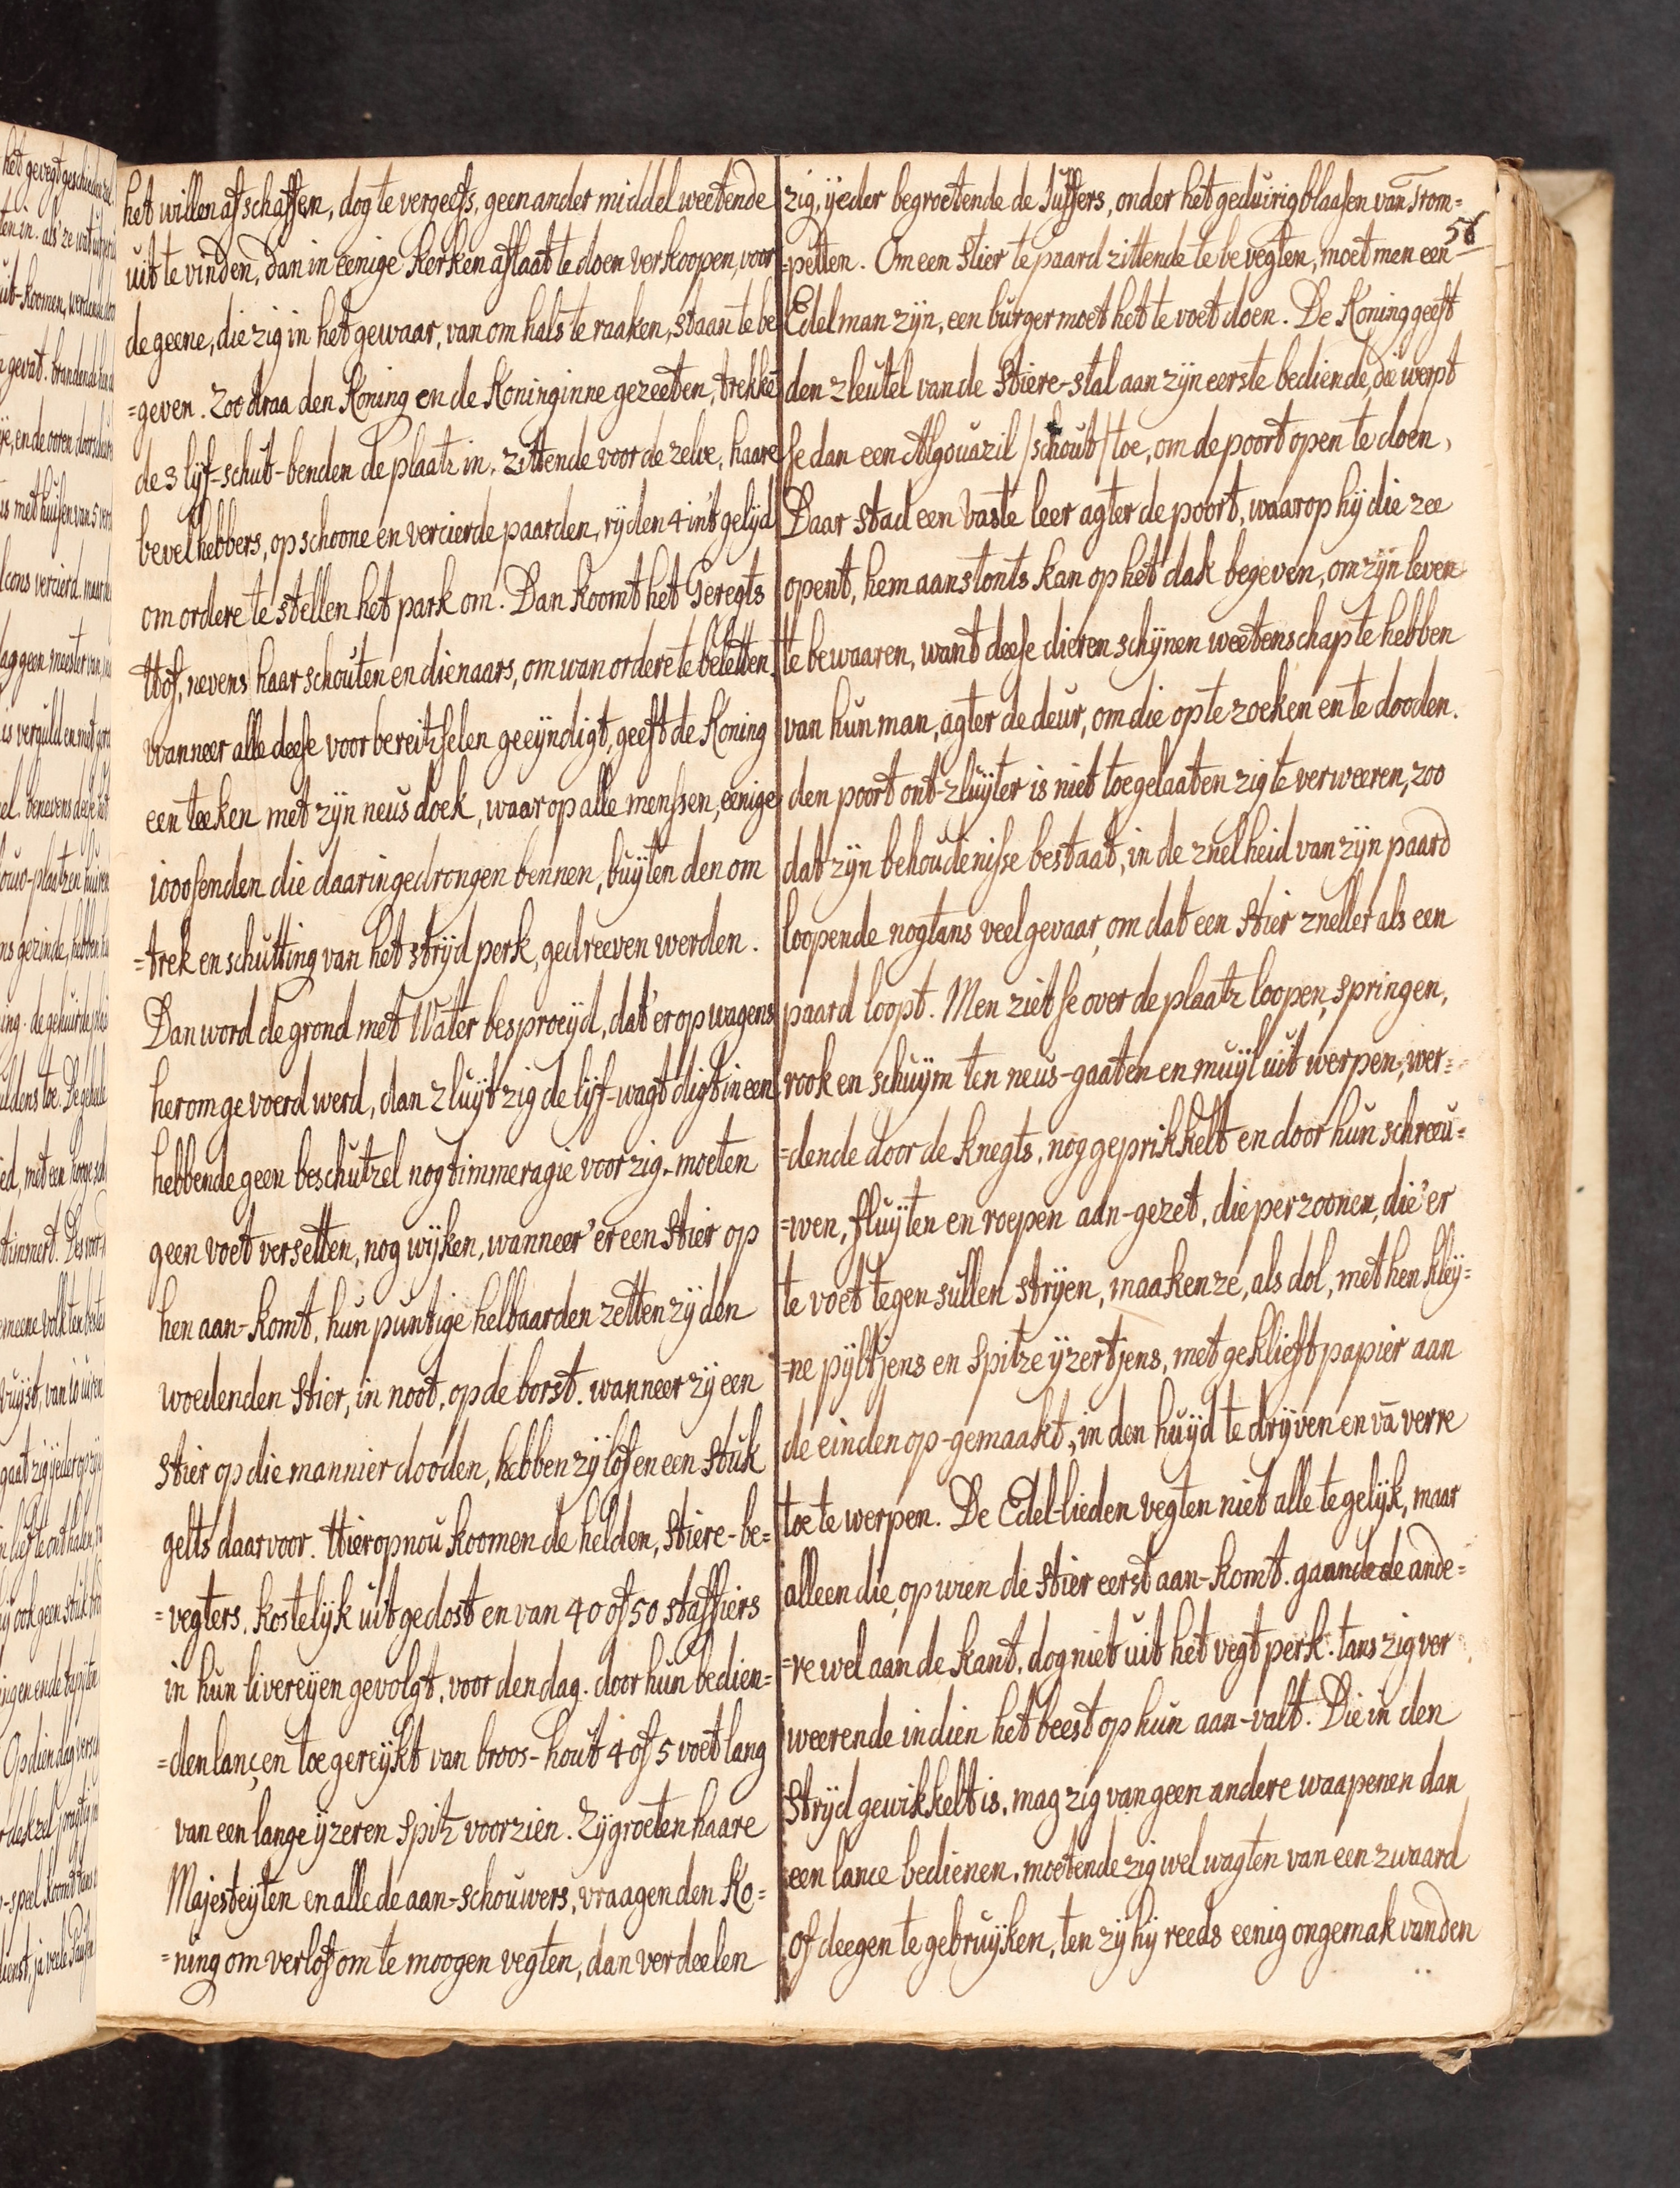 het willen afschaffen, dog te vergeefs, geen ander middel weetende
uit te vinden, dan in eenige Kerken aflaat te doen verkoopen, voor
de geene, die zig in het gewaar, van om hals te raaken, staan te be
=geven. Zoo draa den Koning en de Koninginne gezeeten, trekke
de 3 lijf-schut-benden de plaatz in, zittende voor de zelve, haare
bevelhebbers, op schoone en vercierde paarden, rijden 4 in't gelijd
om ordere te stellen het park om. Dan koomt het Geregts
Hof, nevens haar schouten en dienaars, om wan ordere te beletten.
wanneer alle deese voorbereitzselen geeyndigt, geeft de Koning
een teeken met zijn neusdoek, waar op alle menssen, eenige
1000senden die daar ingedrongen bennen, buyten den om
=trek en schutting van het strijd perk, gedreeven werden.
Dan word de grond met Water besproeyd, dat 'er op wagens
herom gevoerd werd, dan zluyt zig de lijf-wagt digt in een
hebbende geen beschutzel nog timmeragie voor zig. moeten
geen voet versetten, nog wyken, wanneer 'er een Stier op
hen aan-komt, hun puntige helbaarden zetten zij den
woedenden Stier, in noot, op de borst. wanneer zij een
Stier op die mannier dooden, hebben zij lof en een Stuk
gelts daar voor. Hierop nou koomen de helden, Stiere-be=
=vegters, kostelijk uitgedost en van 40 of 50 staffiers
in hun livereyen gevolgt, voor den dag. door hun bedien=
=den lançen toegereykt van broos-hout 4 of 5 voet lang
van een lange yzeren Spitz voorzien. Zij groeten haare
Majesteyten en alle de aan-schouwers, vraagen den Ko=
=ning om verlof om te moogen vegten, dan verdeelen
zig, yeder begroetende de Juffers, onder het geduirig blaasen van Trom=
56
=petten. Om een Stier te paard zittende te bevegten, moet men een
Edelman zijn, een burger moet het te voet doen. De Koning geeft
den zleutel van de Stiere-stal aan zijn eerste bediende, die werpt
se dan een Algouazil /schout/ toe, om de poort open te doen,
Daar stad een vaste leer agter de poort, waar op hij die zee
opent, hem aanstonts kan op het dak begeven, om zijn leven
te bewaaren, want deese dieren schijnen weetenschap te hebben
van hun man, agter de deur, om die op te zoeken en te dooden.
den poort ont-zluyter is niet toegelaaten zig te verweeren, zoo
dat zijn behoudenisse bestaat, in de znelheid van zijn paard
loopende nogtans veel gevaar, om dat een Stier zneller als een
paard loopt. Men ziet se over de plaatz loopen, springen,
rook en schuym ten neus-gaaten en muyl uit werpen, wer=
=dende door de knegts, nog geprikkelt en door hun schreeu=
=wen, fluyten en roepen aan-gezet, die perzoonen, die 'er
te voet tegen sullen stryen, maaken ze, als dol, met hen kley=
=ne pyltjens en Spitze yzertjens, met geklieft papier aan
de einden op-gemaakt, in den huyd te dryven en vā verre
toe te werpen. De Edel-lieden vegten niet alle tegelijk, maar
alleen die, op wien de Stier eerst aan-komt. gaande de ande=
=re wel aan de kant, dog niet uit het vegt perk. tans zig ver
weerende indien het beest op hun aan-valt. Die in den
Strijd gewikkelt is, mag zig van geen andere waapenen dan
een lance bedienen, moetende zig wel wagten van een zwaard
of deegen te gebruyken, ten zij hij reeds eenig ongemak van den